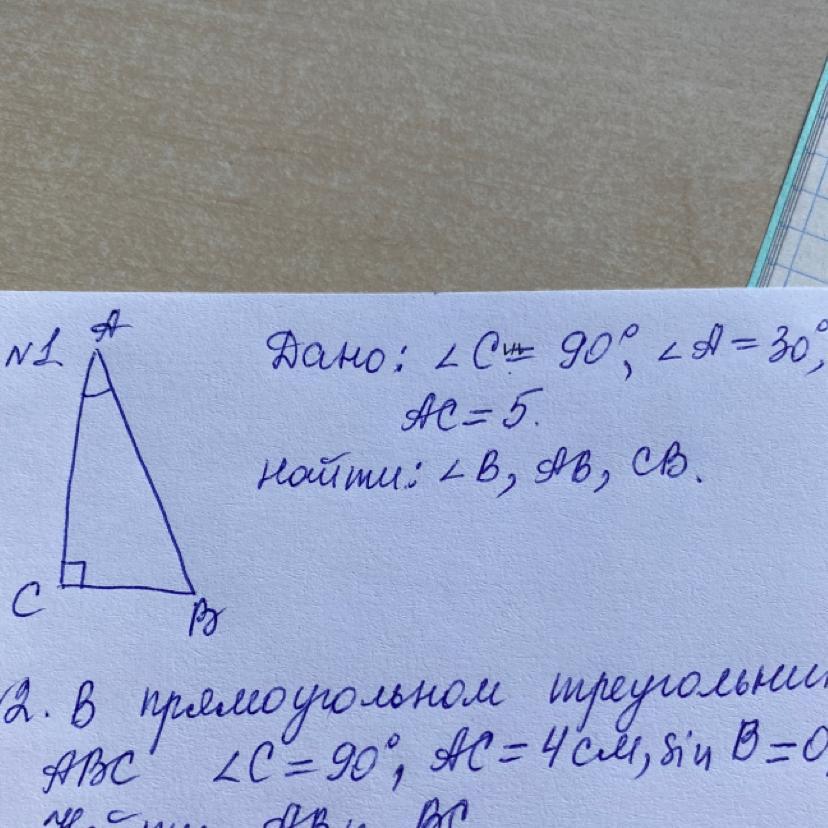 №1
A
Дано: ∠C = 90°, ∠A = 30°,
AC = 5.
Найти: ∠B, AB, CB.
C
B
2. В прямоугольном
ABC ∠C = 90°, AC = 4 см, sin B = 0,